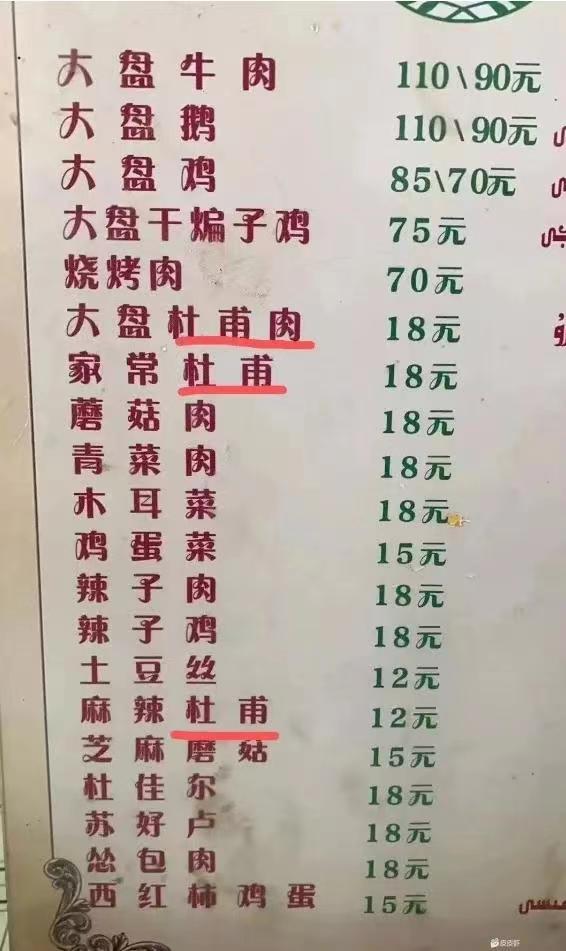 大盘牛肉 110\90元
大盘鹅 110\90元
大盘鸡 85\70元
大盘干煸子鸡 75元
烧烤肉 70元
大盘杜甫肉 18元
家常杜甫 18元
蘑菇肉 18元
青菜肉 18元
木耳菜 18元
鸡蛋菜 15元
辣子肉 18元
辣子鸡 18元
土豆丝 12元
麻辣杜甫 12元
芝麻磨姑 15元
杜佳尔 18元
苏好卢 18元
怂包肉 18元
西红柿鸡蛋 15元
皮皮虾